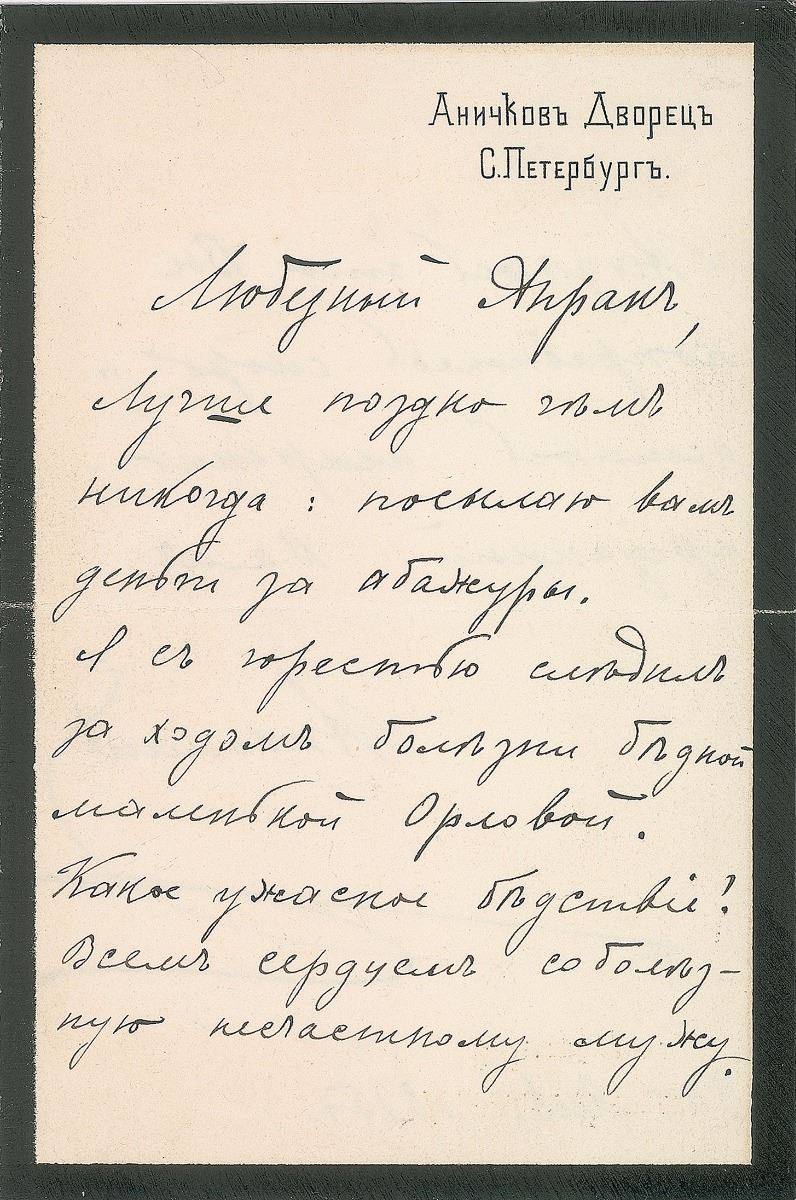 Аничковъ Дворецъ
С.Петербургъ.
Любезный Апракъ,
Лучше поздно чѣмъ
никогда: посылаю вамъ
деньги за абажуры.
Я съ горестью слѣдилъ
за ходомъ болѣзни бѣдной
маленькой Орловой.
Какое ужасное бѣдствіе!
Всемъ сердцемъ соболѣз-
ную несчастному мужу.